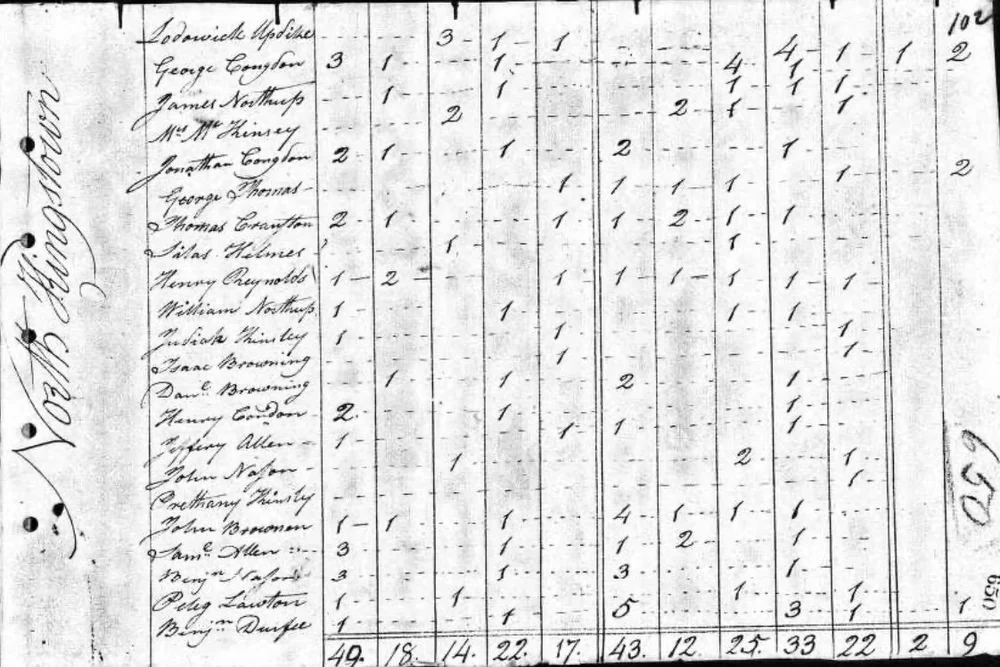 102
North Kingstown
Lodowick Updike 3 1 1 4 1 1 2
George Congdon 3 1 1 4 1
James Northup 1 1 1 1 1
Mrs Mc Kinsey 2 2 1 1
Jonathan Congdon 2 1 1 2 1
George Thomas 1 1 1 1 1 2
Thomas Cranston 2 1 1 1 2 1 1
Silas Helmes 1 1
Henry Reynolds 1 2 1 1 1 1 1 1
William Northup 1 1 1 1
Kinsley 1 1 1
Isaac Browning 1 1
Danl Browning 1 1 2 1
Henry Condon 2 1 1
Jeffery Allen 1 1 1 1
John Nason 1 2 1
Kinsly 1
John Brownen 1 1 1 4 1 1 1
Saml Allen 3 1 1 2 1
Benjn Nason 3 1 3 1
Peleg Lawton 1 1 1 1
Benjn Durfee 1 1 5 3 1 1
49. 18. 14. 22. 17. 43. 12. 25. 33 22 2 9
650
650